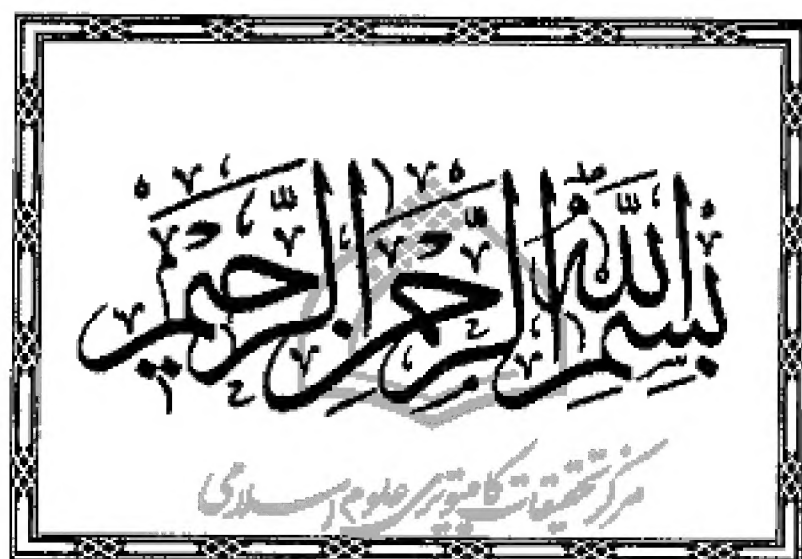 بِسْمِ اللّٰهِ الرَّحْمٰنِ الرَّحِيْمِ
مرکز تحقیقات کامپیوتری علوم اسلامی